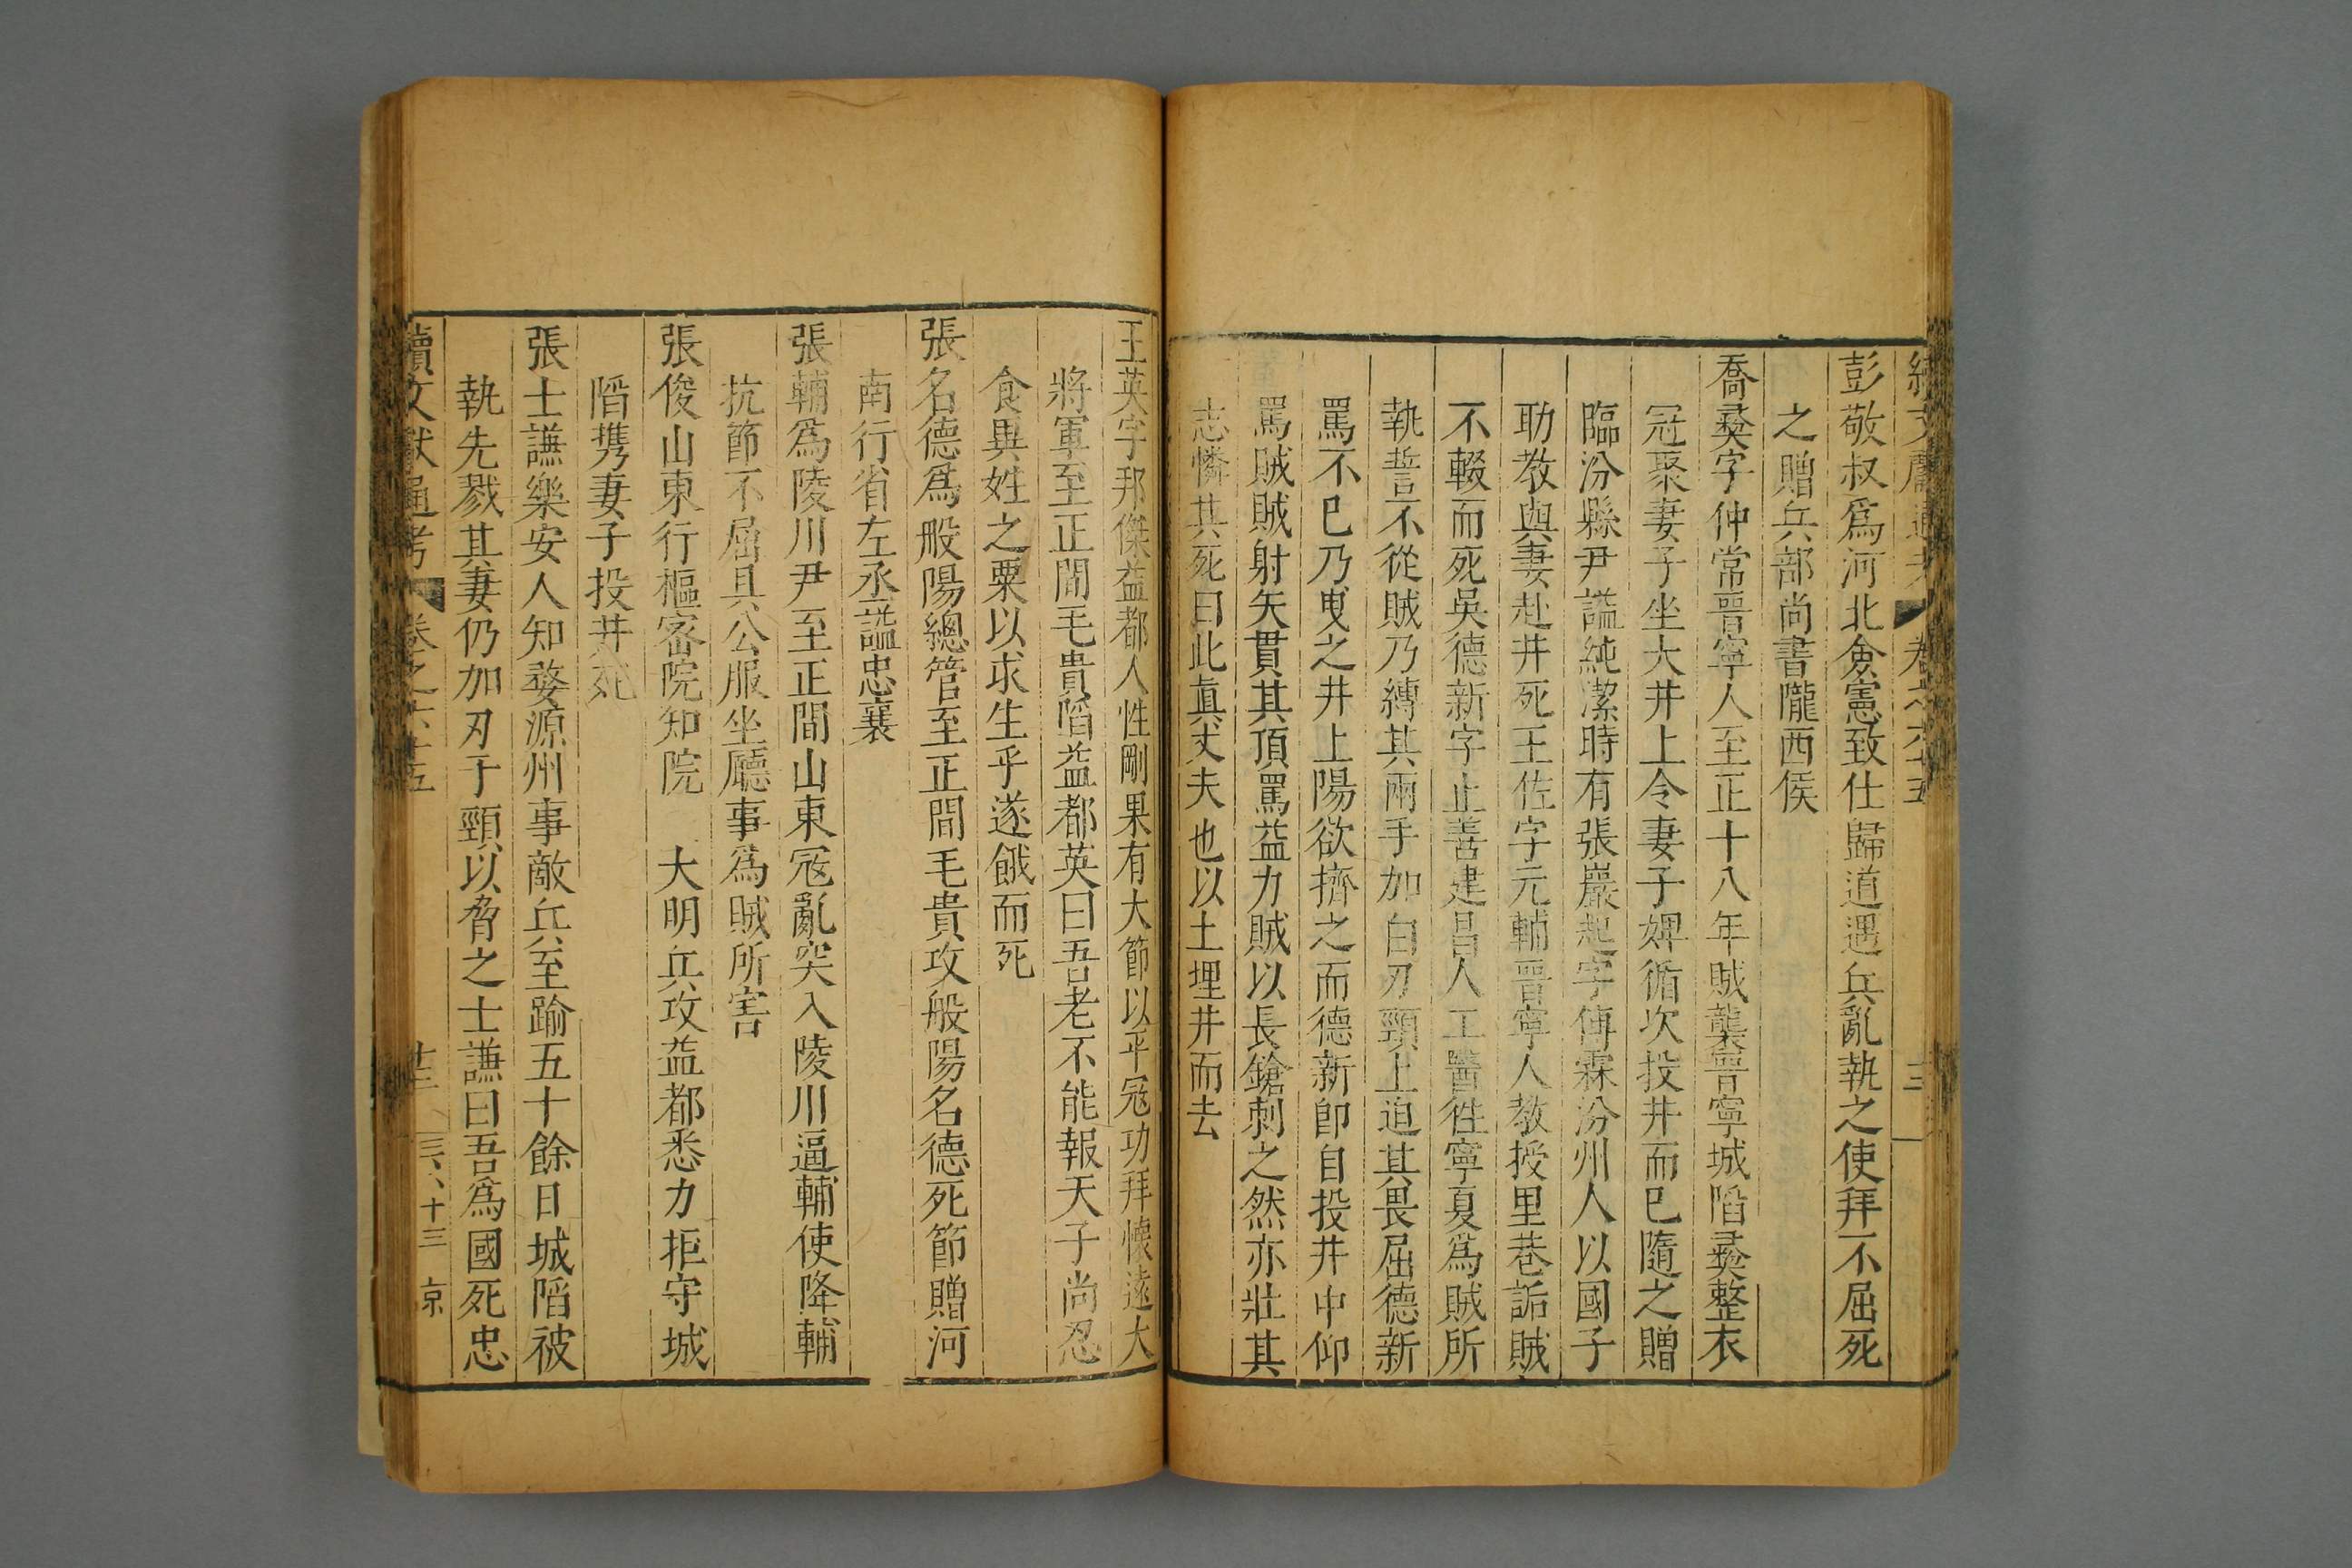 續文獻通考 卷之六十五
彭敬叔爲河北僉憲致仕歸道遇兵亂執之使拜不屈死
之贈兵部尚書隴西侯
喬彛字仲常晋寧人至正十八年賊襲晋寧城陷彛整衣
冠聚妻子坐大井上令妻子婢循次投井而已隨之贈
臨汾縣尹諡純潔時有張巖起字傅霖汾州人以國子
助教與妻赴井死王佐字元輔晋寧人教授里巷詬賊
不輟而死吳德新字止善建昌人工醫徃寧夏爲賊所
執誓不從賊乃縛其兩手加白刃頸上迫其畏屈德新
罵不已乃曳之井上陽欲擠之而德新即自投井中仰
罵賊賊射矢貫其頂罵益力賊以長鎗刺之然亦壯其
志憐其死曰此眞丈夫也以土埋井而去
王英字邦傑益都人性剛果有大節以平冦功拜懷遠大
將軍至正間毛貴陷益都英曰吾老不能報天子尚忍
食異姓之粟以求生乎遂餓而死
張名德爲般陽總管至正間毛貴攻般陽名德死節贈河
南行省左丞諡忠襄
張輔爲陵川尹至正間山東冦亂突入陵川逼輔使降輔
抗節不屈具公服坐廳事爲賊所害
張俊山東行樞密院知院 大明兵攻益都悉力拒守城
陷携妻子投井死
張士謙樂安人知婺源州事敵兵至踰五十餘日城陷被
執先戮其妻仍加刃于頸以脅之士謙曰吾爲國死忠
續文獻通考 卷之六十五 十三 三、十三 京